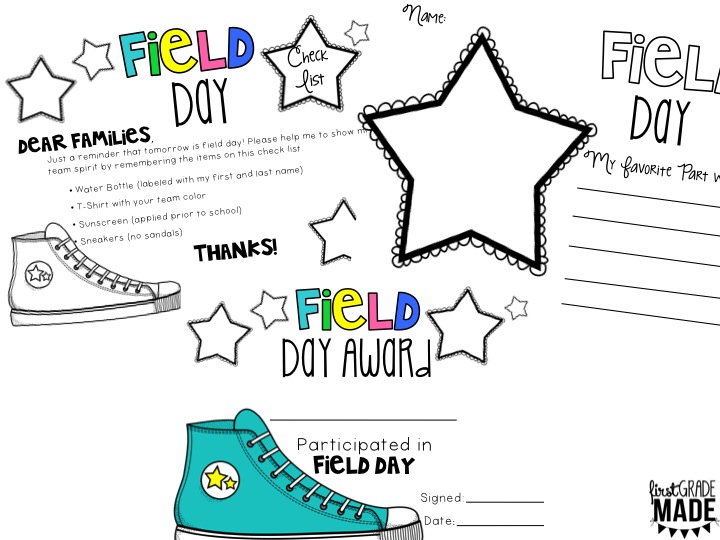 FiELD
DAY
Check
List
DEAR FAMILIES,
Just a reminder that tomorrow is field day! Please help me to show my
team spirit by remembering the items on this check list.
• Water Bottle (labeled with my first and last name)
• T-Shirt with your team color
• Sunscreen (applied prior to school)
• Sneakers (no sandals)
THANKS!
Name:
FiEL
DAY
My Favorite Part w
FiELD
DAY AWARd
Participated in
FiELD DAY
Signed:
Date:
firstGRADE
MADE